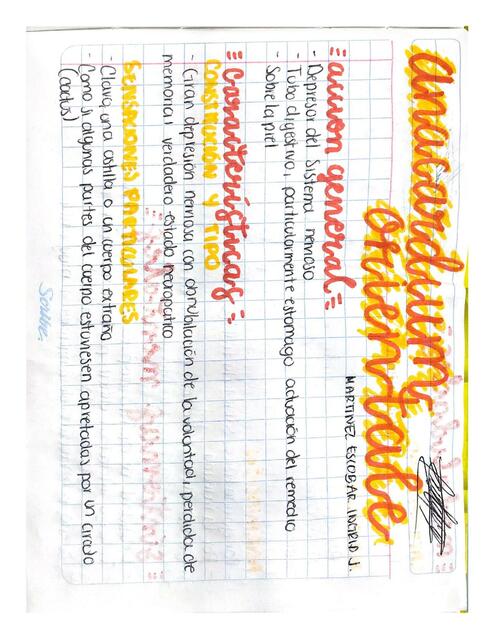 anacardium
orientale
MARTINEZ ESCOBAR INGRID J.
accion general
- Depresor del sistema nervioso
- Tubo digestivo, particularmente estomago actuación del remedio
- Sobre la piel
Características
CONSTITUCIÓN Y TIPO
- Gran depresión nerviosa con obnubilación de la voluntad, perdida de
memoria: verdadero estado neuropatico
SENSACIONES PARTICULARES
- Clavo, una astilla o un cuerpo extraño
- Como si algunas partes del cuerpo estuviesen apretadas por un circulo